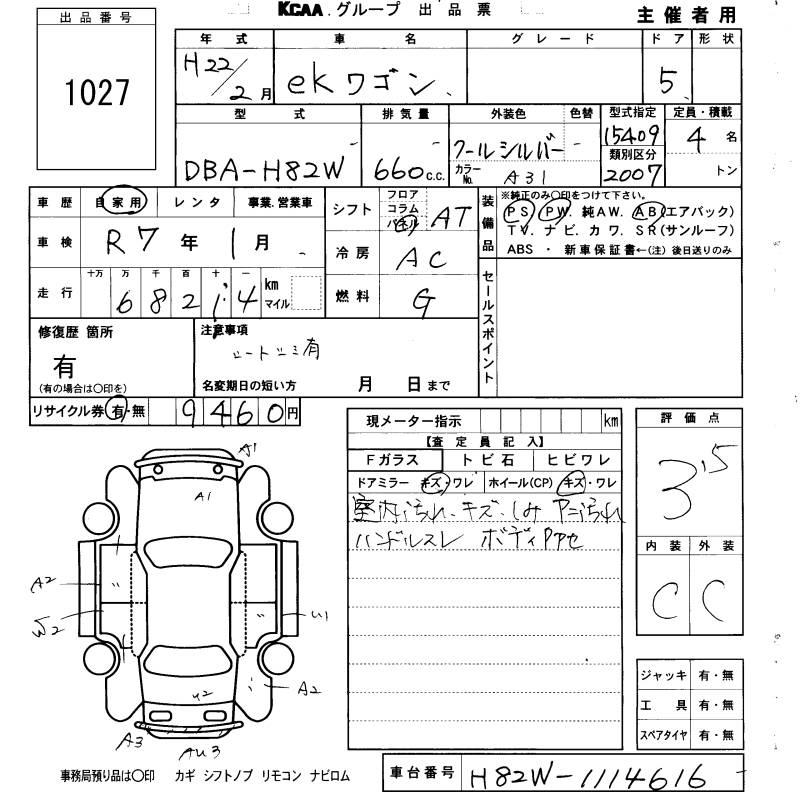 KCAA.グループ 出品票
主催者用
出品番号
1027
年式 車名 グレード ドア 形状
H22/2月 ekワゴン 5
型式 排気量 外装色 色替 型式指定 定員・積載
DBA-H82W 660c.c. クールシルバー 15409 4名
カラーNo. A31 類別区分 2007 トン
車歴 自家用 レンタ 事業.営業車
車検 R7年1月
走行 十万 万 千 百 十 一
6 8 2 1 4 km マイル
シフト フロア コラム パネル AT
冷房 AC
燃料 G
装備品 ※純正のみ〇印をつけて下さい。
PS PW. 純AW. AB(エアバック)
TV. ナビ. カワ. SR(サンルーフ)
ABS ・ 新車保証書←(注) 後日送りのみ
セールスポイント
修復歴 箇所
有
(有の場合は〇印を)
注意事項
シートシミ有
名変期日の短い方 月 日まで
リサイクル券 有・無 9460円
現メーター指示 km
【査定員記入】
Fガラス トビ石 ヒビワレ
ドアミラー キズ・ワレ ホイール(CP) キズ・ワレ
室内汚れ、キズ、しみ 天に汚れ
ハンドルスレ ボディ
評価点
3.5
内装 外装
C C
A1
A1
A2
W2
U1
U2
A2
A3
AU3
ジャッキ 有・無
工具 有・無
スペアタイヤ 有・無
事務局預り品は〇印 カギ シフトノブ リモコン ナビロム
車台番号 H82W-1114616